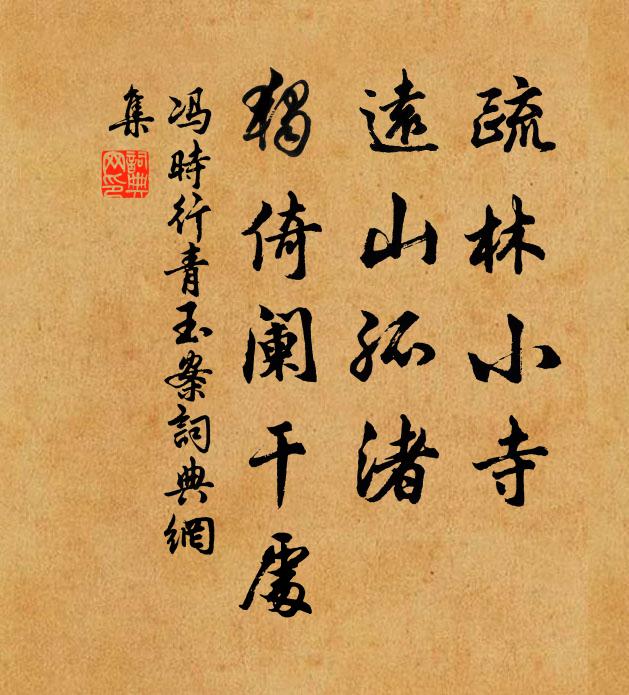 疏林小寺
遠山孤渚
獨倚闌干處
馮時行青玉案詞典網
集
詞典網印